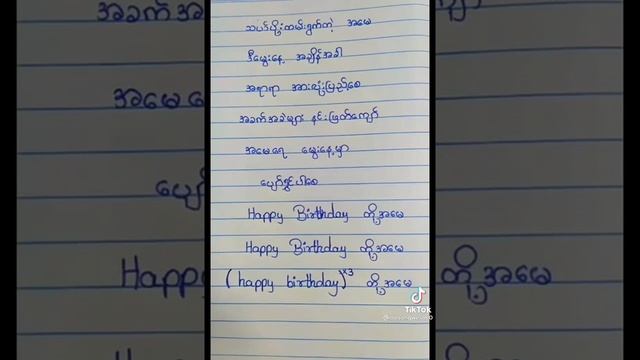 သပဒ်ပိုးထမ်းရွက်တဲ့ အမေ
ဒီမွေးနေ့ အချိန်အခါ
အရာရာ အားလုံးပြည့်စေ
အခက်အခဲများ နင်းဖြတ်ကျော်
အမေရေ မွေးနေ့မှာ
ပျော်ရွှင်ပါစေ
Happy Birthday တို့အမေ
Happy Birthday တို့အမေ
(happy birthday)×3 တို့အမေ
TikTok